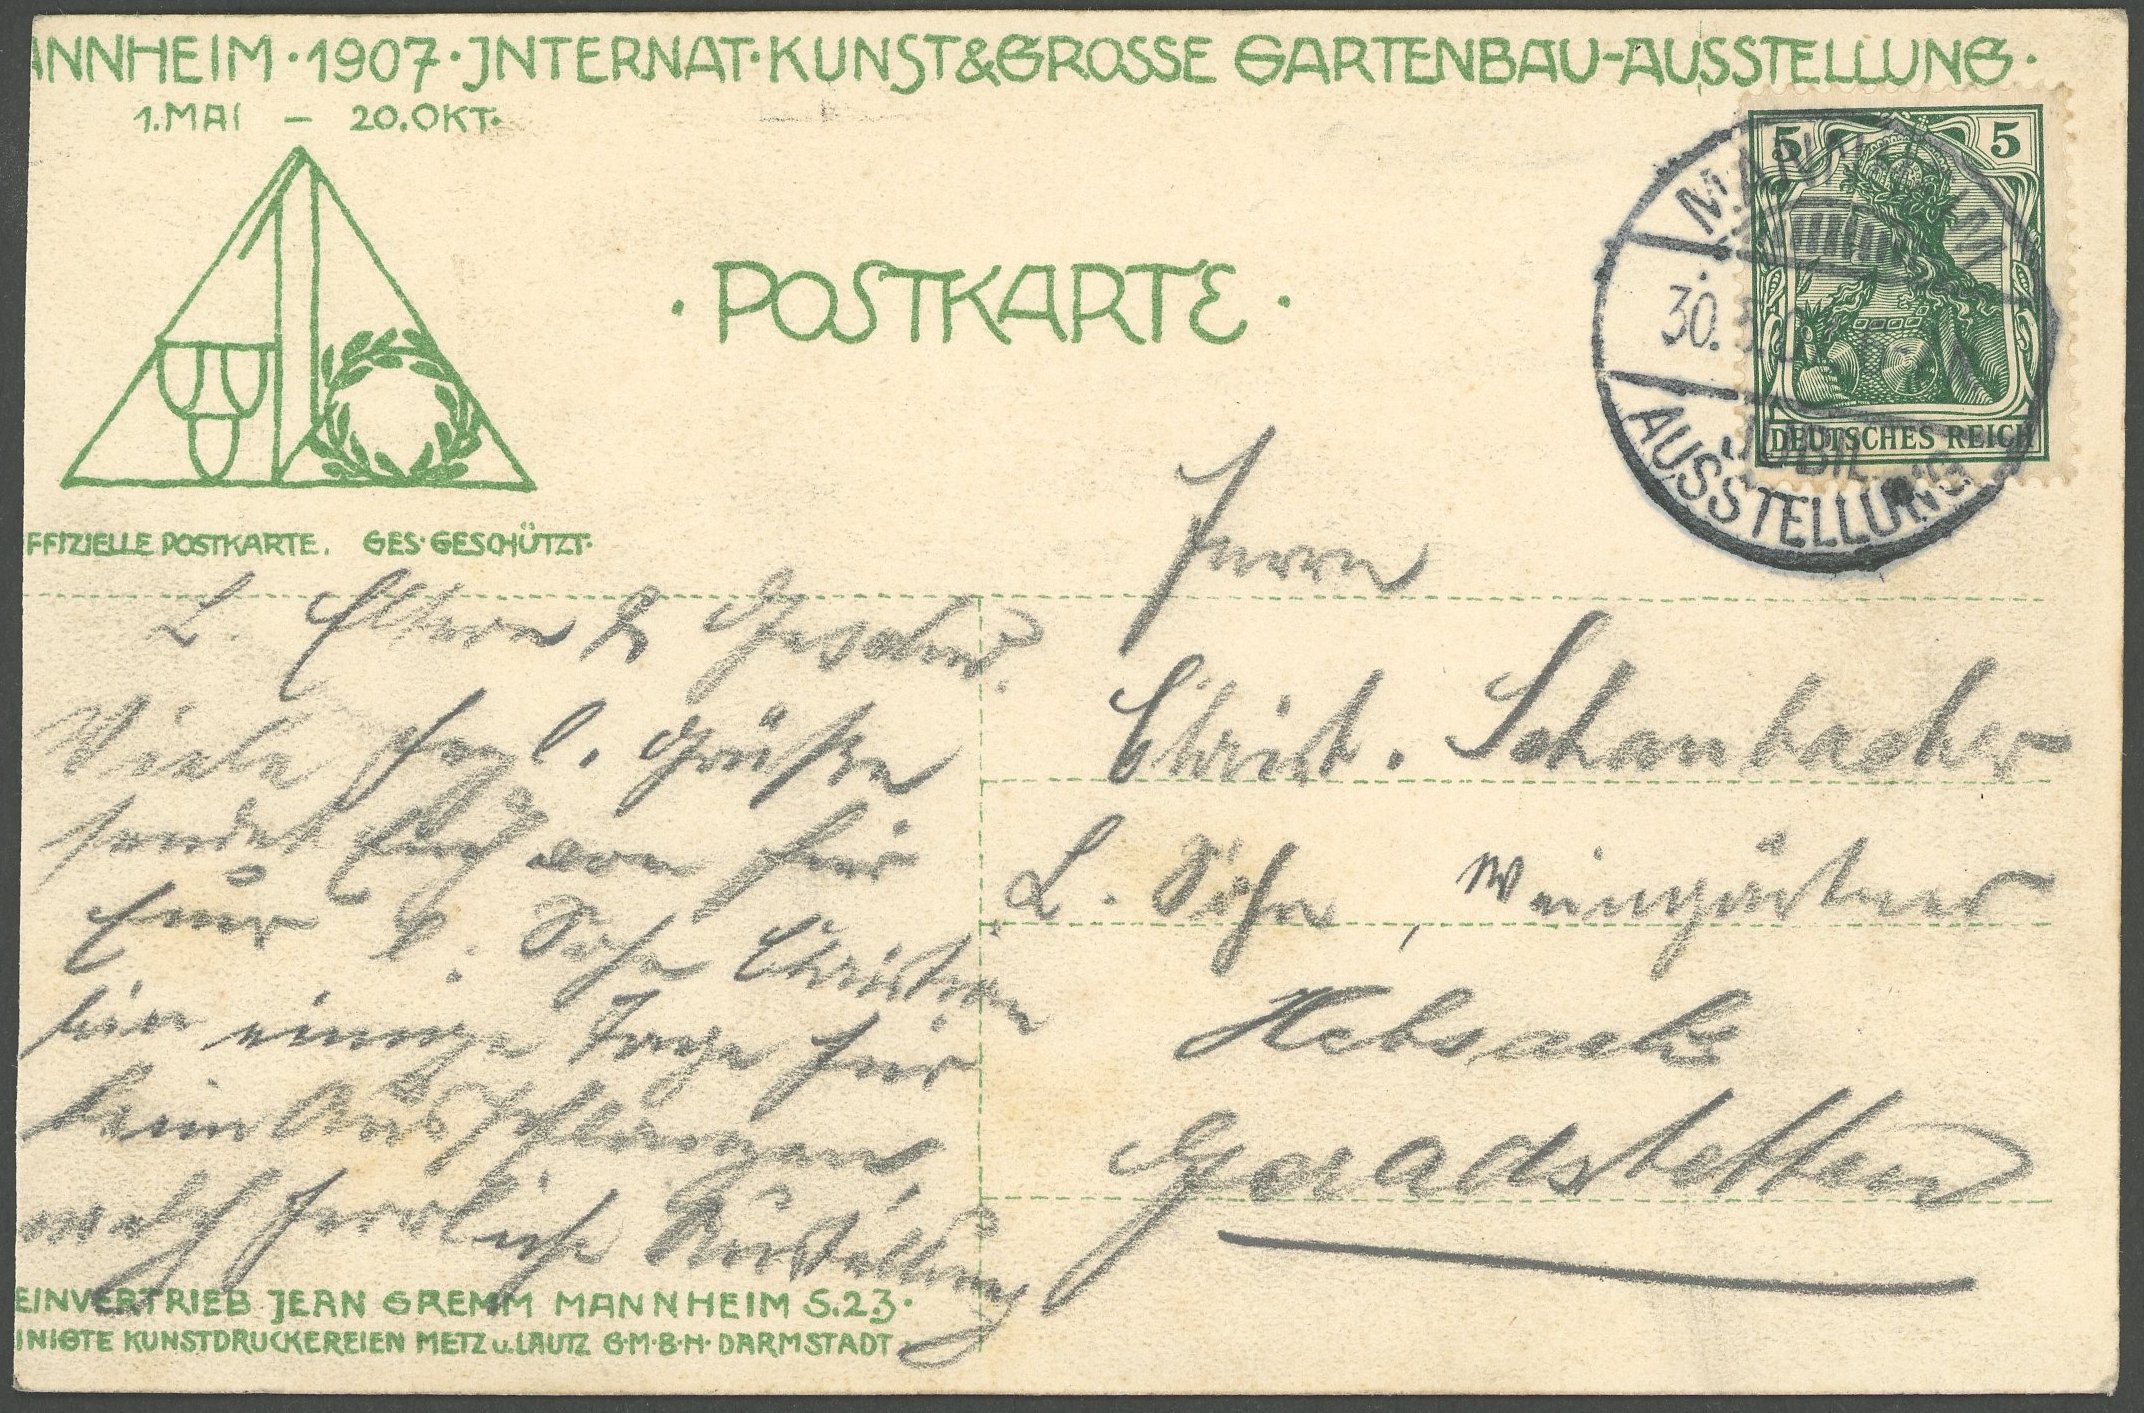 ANNHEIM · 1907 · JNTERNAT · KUNST & GROSSE GARTENBAU-AUSSTELLUNG ·
1. MAI – 20. OKT.
5 5
DEUTSCHES REICH
MANNHEIM
30.
JUBIL.
AUSSTELLUNG
· POSTKARTE ·
FFIZIELLE POSTKARTE. GES. GESCHÜTZT.
L. Eltern & Geschw.
Viele herzl. Grüße
sendet Euch von hier
Euer l. Sohn Christian
bin einige Tage hier
beim
welch herrliche Ausstellung
Herrn
Christ. Schanbacher
L. Sohn, Weingärtner
Hebsack
Geradstetten
EINVERTRIEB JEAN GREMM MANNHEIM S.2.3.
INIGTE KUNSTDRUCKEREIEN METZ u. LAUTZ G·M·B·H· DARMSTADT.